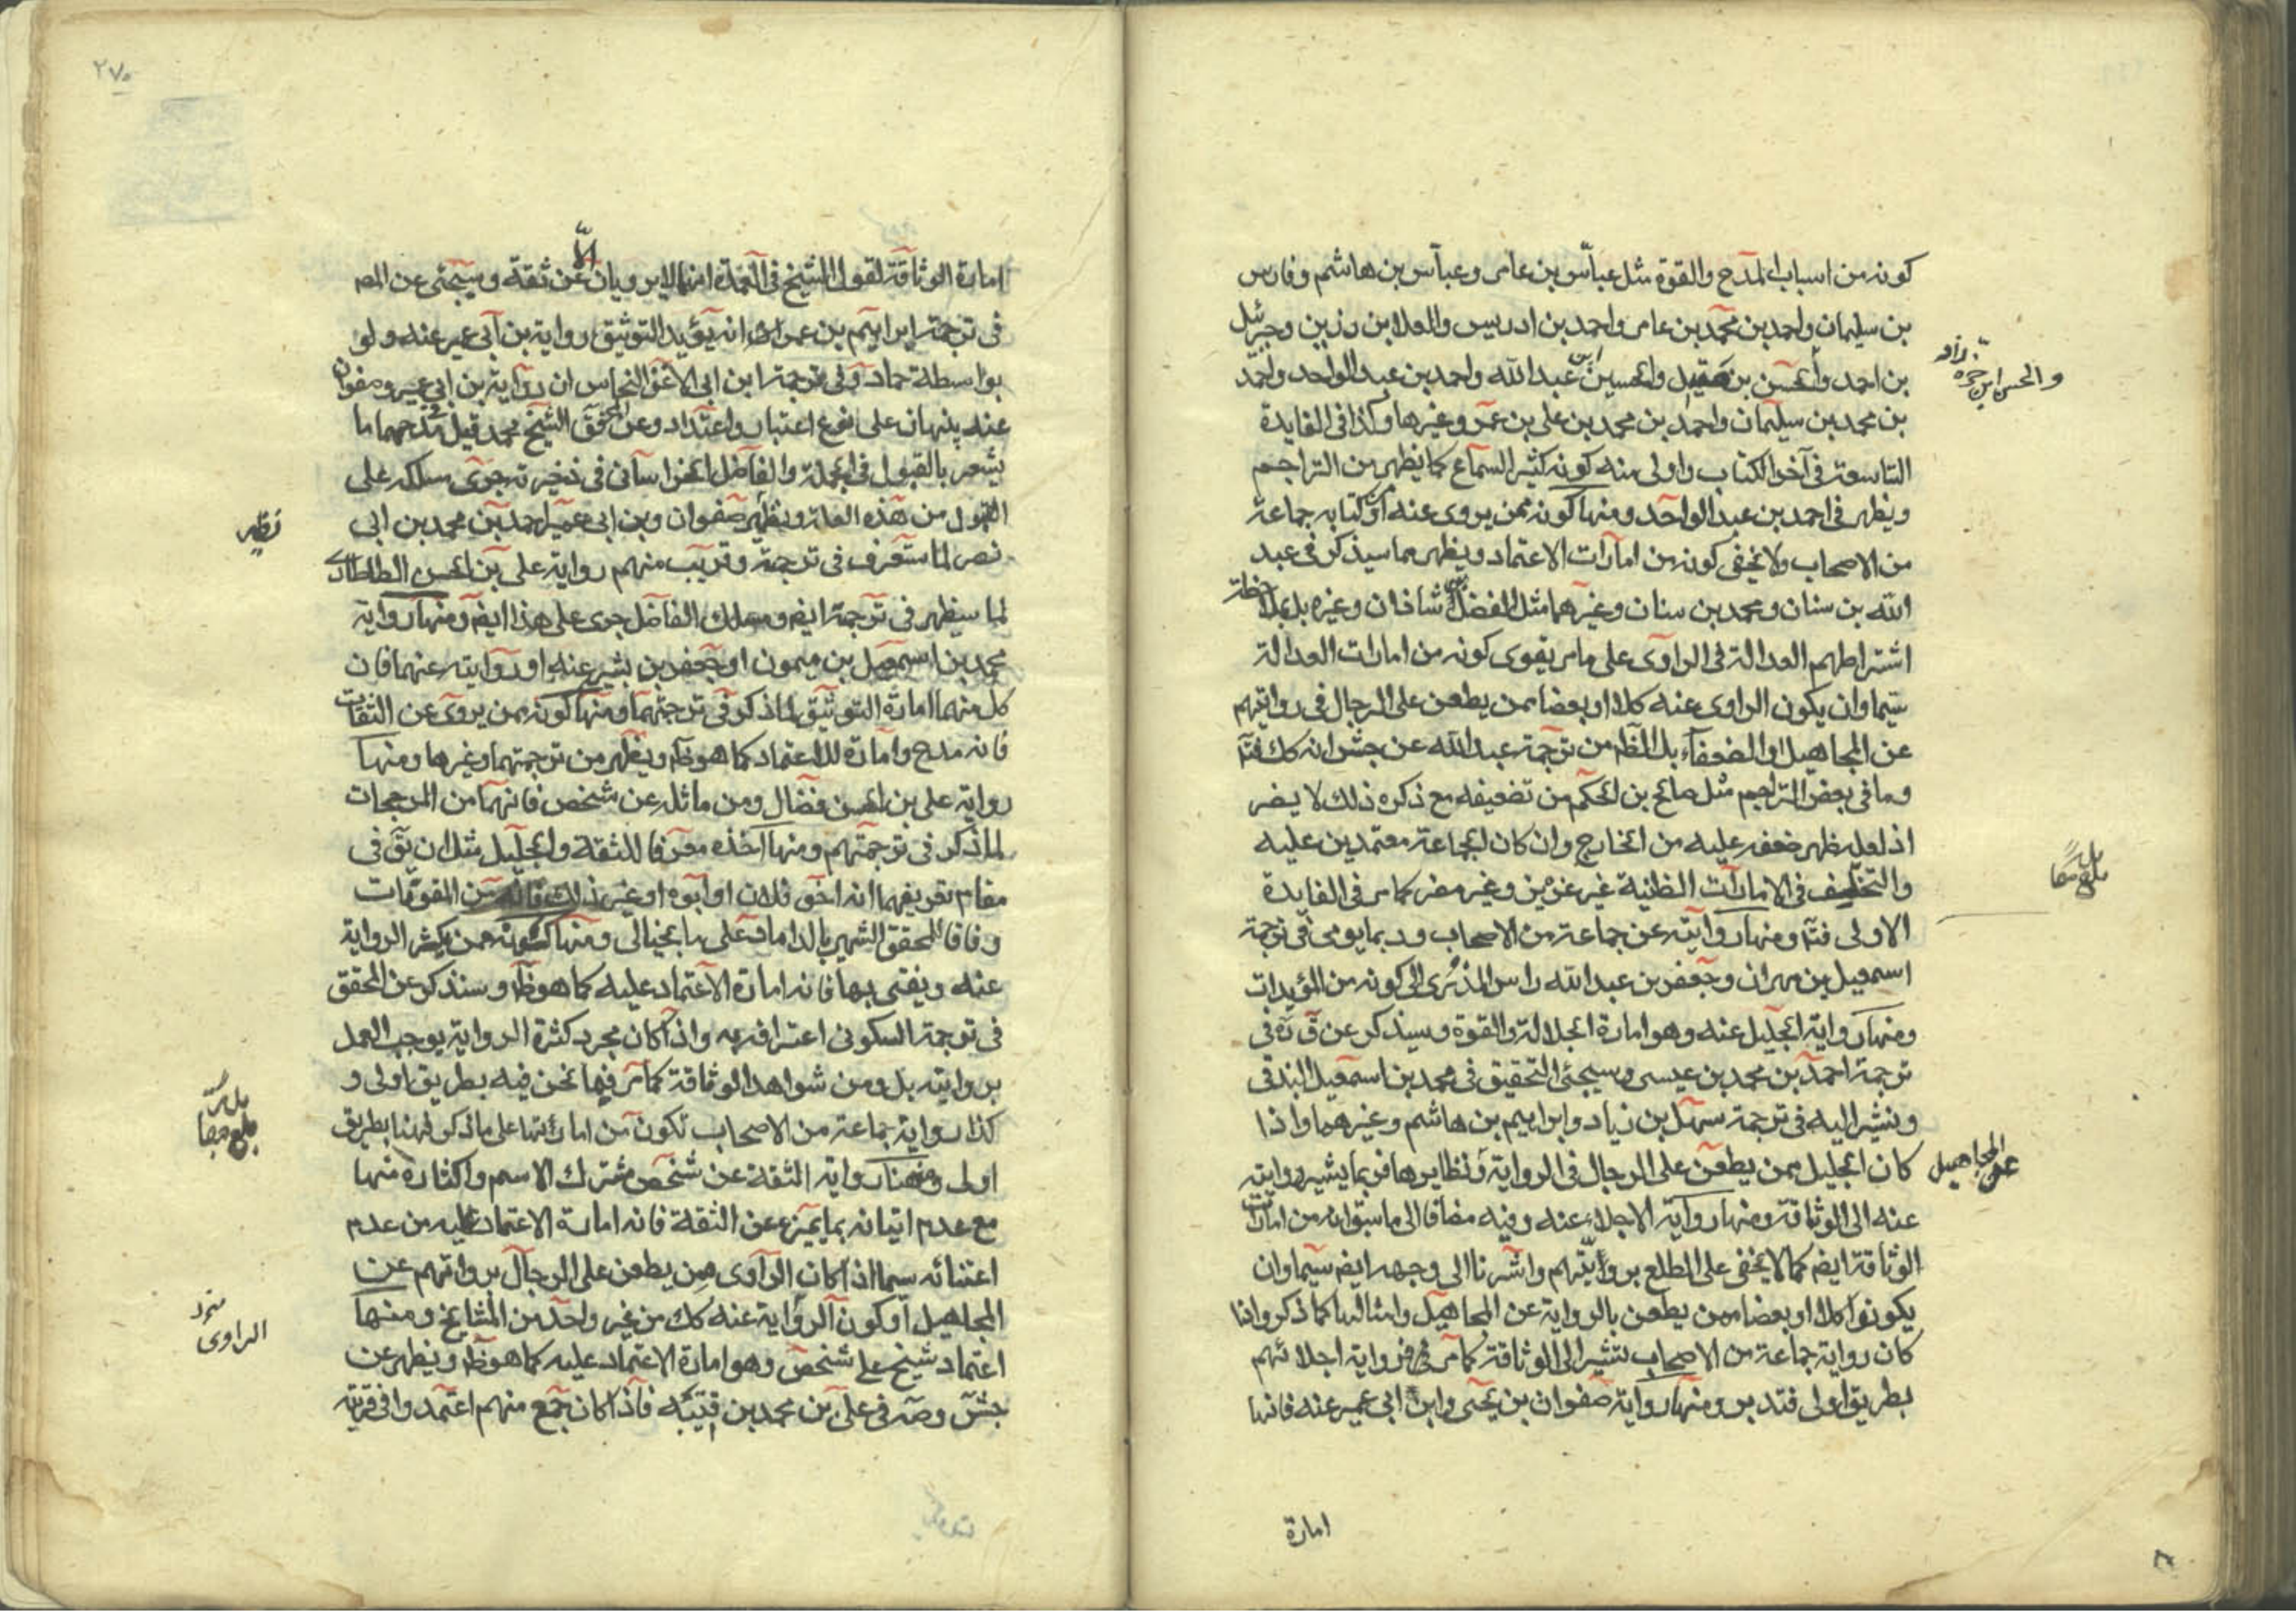 كونه من اسباب المدح والقوة مثل عباس بن عامر وعباس بن هاشم وفارس
بن سليمان واحمد بن محمد بن عامر واحمد بن ادريس والعلا بن رزين وجبرئيل
بن احمد والحسن بن متيل والحسين بن عبد الله واحمد بن عبد الواحد واحمد
والحسن ابن حمزة
بن محمد بن سليمان واحمد بن محمد بن على بن عمر وغيرها وكذا فى الفايدة
التاسعة فى آخر الكتاب واولى منه كونه كثير السماع كما يظهر من التراجم
ويظهر فى احمد بن عبد الواحد ومنها كونه ممن يروى عنه او كتابه جماعة
من الاصحاب ولا يخفى كونه من امارات الاعتماد ويظهر مما سيذكر فى عبد
الله بن سنان ومحمد بن سنان وغيرهما مثل الفضل بن شاذان وغيره بل بملاحظة
اشتراطهم العدالة فى الراوى على ما مر يقوى كونه من امارات العدالة
سيما وان يكون الراوى عنه كلا او بعضا ممن يطعن على الرجال فى روايتهم
عن المجاهيل والضعفاء بل الظاهر من ترجمة عبد الله عن جش انه كك فتأ
وما فى بعض التراجم مثل صالح بن الحكم من تضعيفه مع ذكره ذلك لا يضر
اذ لعله ظهر ضعفه عليه من الخارج وان كان الجماعة معتمدين عليه
والتخلف فى الامارات الظنية غير عزيز وغير مضر كما مر فى الفايدة
الاولى فتأ ومنها روايته عن جماعة من الاصحاب وربما يومى فى ترجمة
اسمعيل بن مهران وجعفر بن عبد الله راس المذرى الى كونه من المؤيدات
ومنها رواية الجليل عنه وهو امارة الجلالة والقوة وسيذكر عن ق ره فى
ترجمة احمد بن محمد بن عيسى وسيجئ التحقيق فى محمد بن اسمعيل البندقى
ونشير اليه فى ترجمة سهل بن زياد وابراهيم بن هاشم وغيرهما واذا
كان الجليل ممن يطعن على الرجال فى الرواية ونظايرها فربما يشير روايته
عن المجاهيل
عنه الى الوثاقة ومنها رواية الاجلاء عنه وفيه مضافا الى ما سبق انه من امارات
الوثاقة ايضم كما لا يخفى على المطلع بروايتهم واشرنا الى وجهه ايضم سيما وان
يكونوا كلا او بعضا ممن يطعن بالرواية عن المجاهيل وامثالها كما ذكر واذا
كان رواية جماعة من الاصحاب تشير الى الوثاقة كما مر فرواية اجلائهم
بطريق اولى فتدبر ومنها رواية صفوان بن يحيى وابن ابى عمير عنه فانها
امارة
٢٧٥
امارة الوثاقة لقول الشيخ فى العدة انهما لا يرويان الا عن ثقة وسيجئ عن المص
فى ترجمة ابراهيم بن عمر انه يؤيد التوثيق رواية بن ابى عمير عنه ولو
بواسطة حماد وفى ترجمة ابن ابى الاغر النحاس ان رواية بن ابى عمير وصفوان
عنه ينبهان على نوع اعتبار واعتداد وعن المحقق الشيخ محمد قيل فى مدحهما ما
يشعر بالقبول فى الجملة والفاضل الخراسانى فى ذخيرته جرى مسلكه على
القبول من هذه العلة ونظير صفوان وبن ابى عمير احمد بن محمد بن ابى
نظير
نصر لما ستعرف فى ترجمة وقريب منهم رواية على بن الحسن الطاطرى
لما سيظهر فى ترجمة ايضم ومسلك الفاضل جرى على هذا ايضم ومنها رواية
محمد بن اسمعيل بن ميمون او جعفر بن بشير عنه او روايته عنهما فان
كل منهما امارة التوثيق لما ذكر فى ترجمتهما ومنها كونه ممن يروى عن الثقات
فانه مدح وامارة للاعتماد كما هو ظ ويظهر من ترجمتهما وغيرها ومنها
رواية على بن الحسن فضال ومن ماثله عن شخص فانها من المرجحات
لما ذكر فى ترجمتهم ومنها اخذه معرفا للثقة والجليل مثل ان يق فى
مقام تعريفهما انه اخو فلان او ابوه او غير ذلك فانه من المقويات
وفاقا للمحقق الشهير بالداماد على ما ببالى ومنها كونه ممن يكثر الرواية
عنه ويفتى بها فانه امارة الاعتماد عليه كما هو ظ وسنذكر عن المحقق
فى ترجمة السكونى اعترافه به واذا كان مجرد كثرة الرواية يوجب العمل
بروايته بل ومن شواهد الوثاقة كما مر فما نحن فيه بطريق اولى و
كذا رواية جماعة من الاصحاب تكون من اماراتها على ما ذكر فههنا بطريق
اولى ومنها رواية الثقة عن شخص مشترك الاسم واكثاره منها
مع عدم اتيانه بما يميزه عن الثقة فانه امارة الاعتماد عليه من عدم
اعتنائه سيما اذا كان الراوى ممن يطعن على الرجال برواتهم عن
الراوى
المجاهيل او كون الرواية عنه كك من غير واحد من المشايخ ومنها
اعتماد شيخ على شخص وهو امارة الاعتماد عليه كما هو ظ ويظهر عن
جش وصه فى على بن محمد بن قتيبة فاذا كان جمع منهم اعتمدوا فى قريته